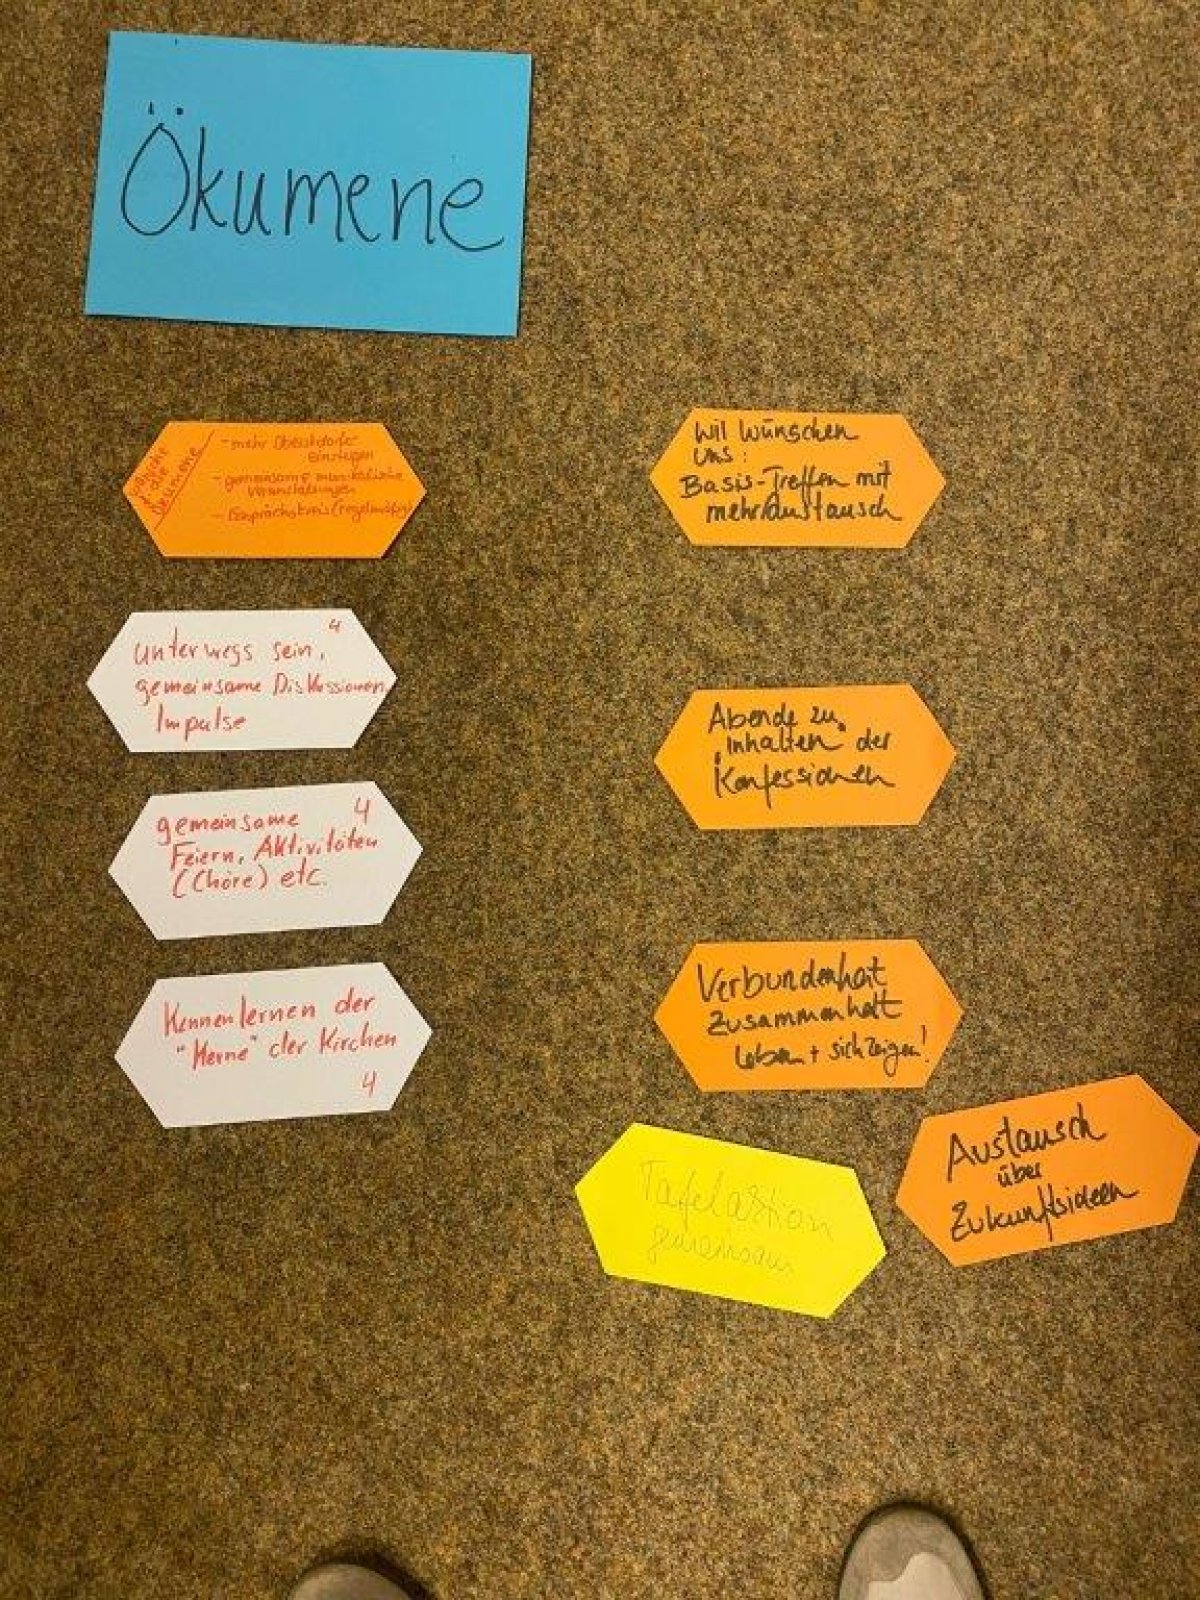 Ökumene
für die
Ökumene
- mehr
einladen
- gemeinsame musikalische
Veranstaltungen
- Gesprächskreis (regelmäßig)
unterwegs sein, 4
gemeinsame Diskussionen
Impulse
gemeinsame 4
Feiern, Aktivitäten
(Chöre) etc.
Kennenlernen der
"Kerne" der Kirchen
4
Wir wünschen
uns:
Basis-Treffen mit
mehr Austausch
Abende zu
"Inhalten" der
Konfessionen
Verbundenheit
Zusammenhalt
leben + sich zeigen!
Tafelaktion
gemeinsam
Austausch
über
Zukunftsideen